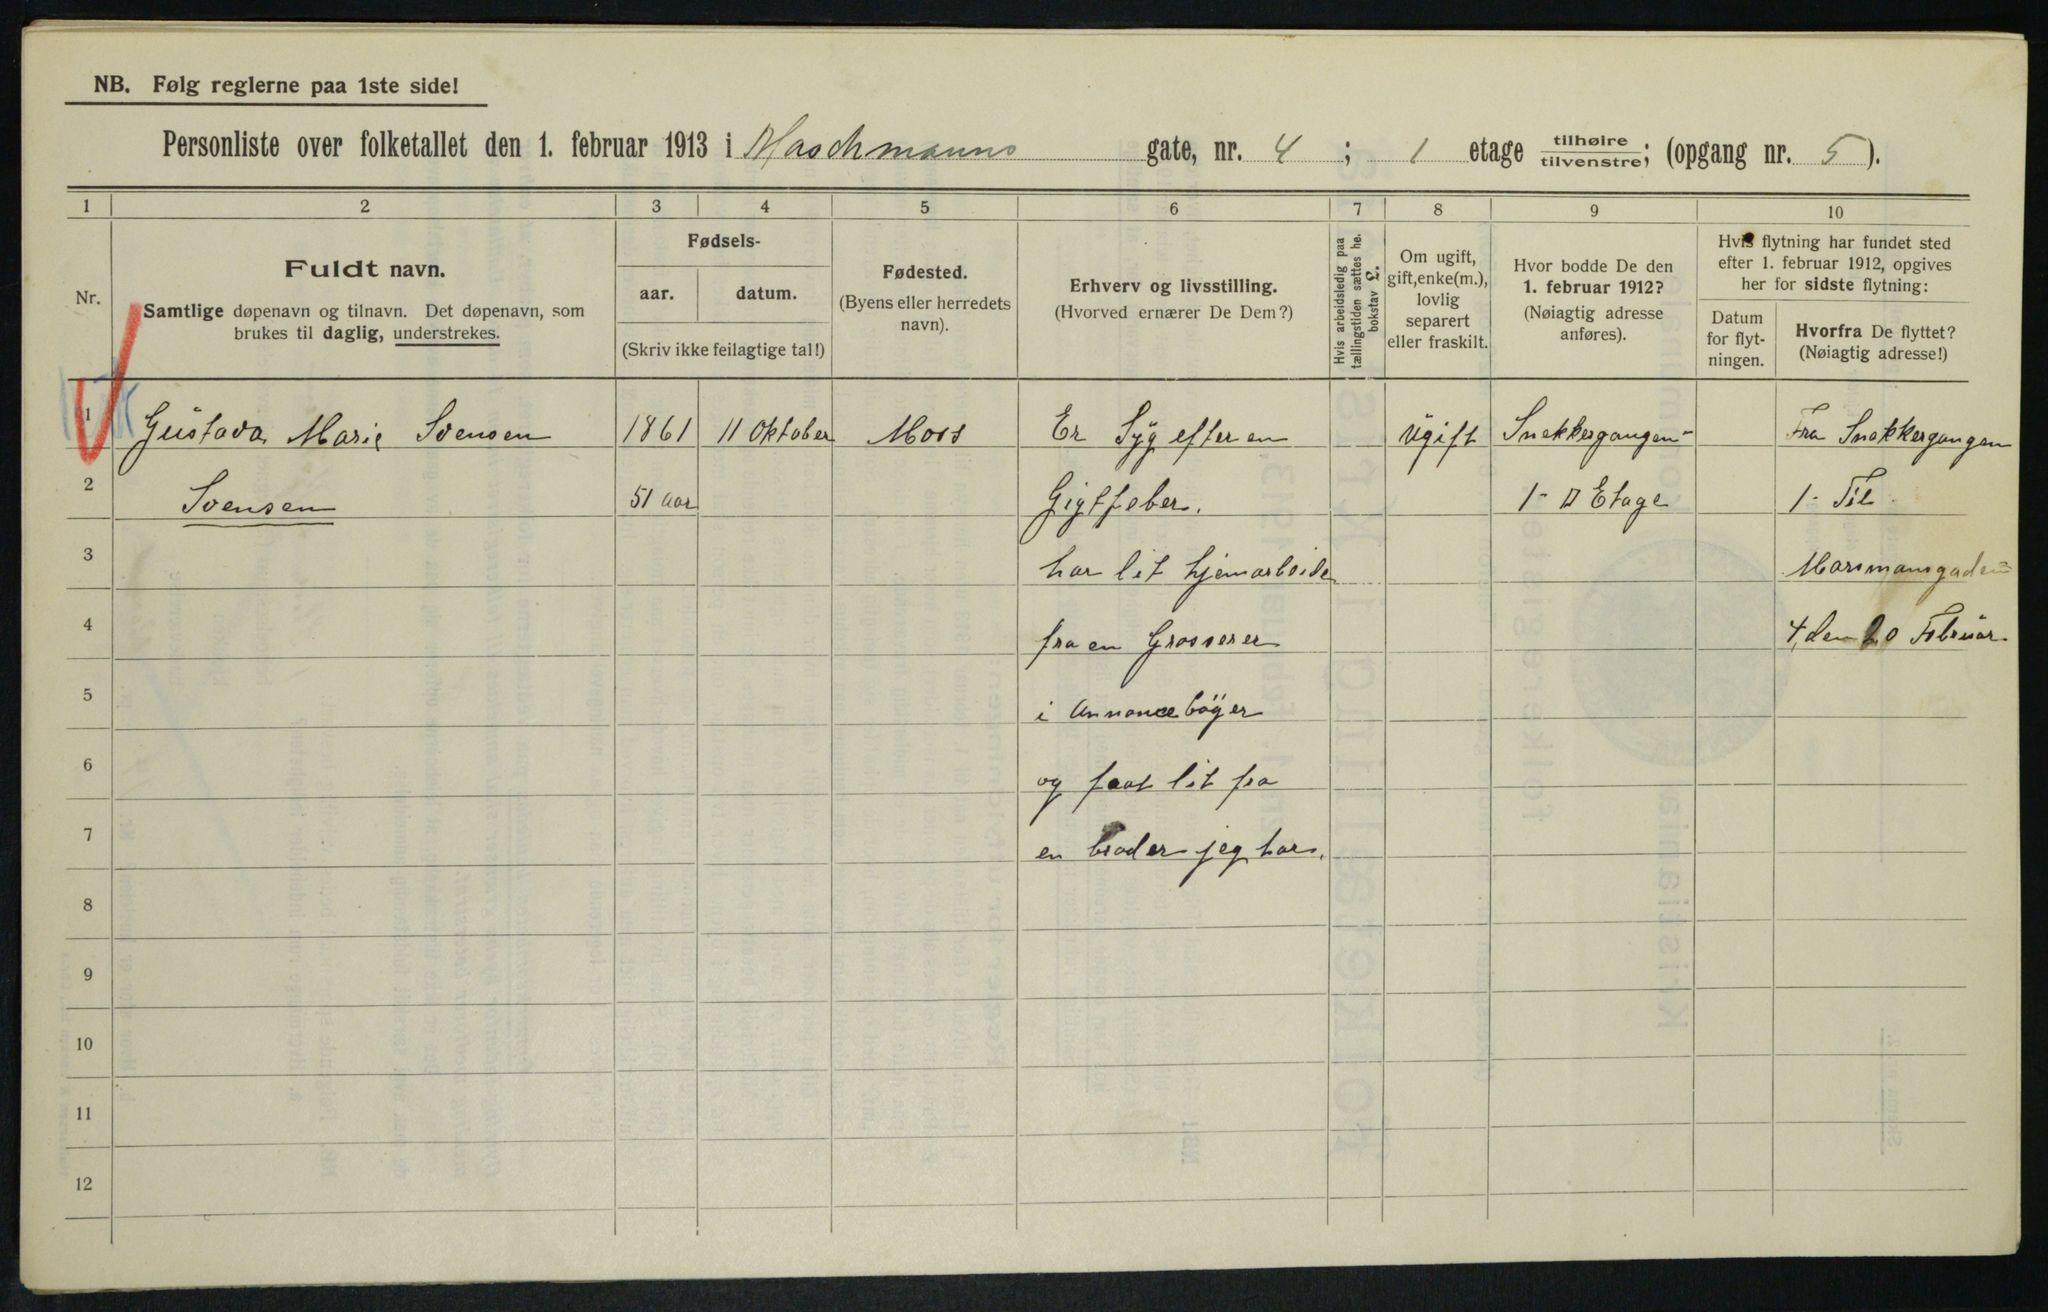 NB. Følg reglerne paa 1ste side!
Personliste over folketallet den 1. februar 1913 i Maschmanns gate, nr. 4 ; 1 etage tilhøire tilvenstre; (opgang nr. 5 ).
1 2 3 4 5 6 7 8 9 10
Nr.
Fuldt navn.
Samtlige døpenavn og tilnavn. Det døpenavn, som
brukes til daglig, understrekes.
Fødsels-
aar. datum.
(Skriv ikke feilagtige tal!)
Fødested.
(Byens eller herredets
navn).
Erhverv og livsstilling.
(Hvorved ernærer De Dem?)
Hvis arbeidsledig paa
tællingstiden sættes he.
bokstav L.
Om ugift,
gift, enke(m.),
lovlig
separert
eller fraskilt.
Hvor bodde De den
1. februar 1912?
(Nøiagtig adresse
anføres).
Hvis flytning har fundet sted
efter 1. februar 1912, opgives
her for sidste flytning:
Datum
for flyt-
ningen.
Hvorfra De flyttet?
(Nøiagtig adresse!)
1 Gustava Marie Svensen 1861 11 Oktober Moss Er Syg efter en Ugift Snekkergangen Fra Snekkergangen
2 Svensen 51 aar Gigtfeber. 1 - II Etage 1 - Til
3 har lit hjemarbeide Marsmansgaden
4 fra en Grosserer 4, den 20 Februar
5 i Annoncebøger
6 og faat lit fra
7 en broder jeg har.
8
9
10
11
12